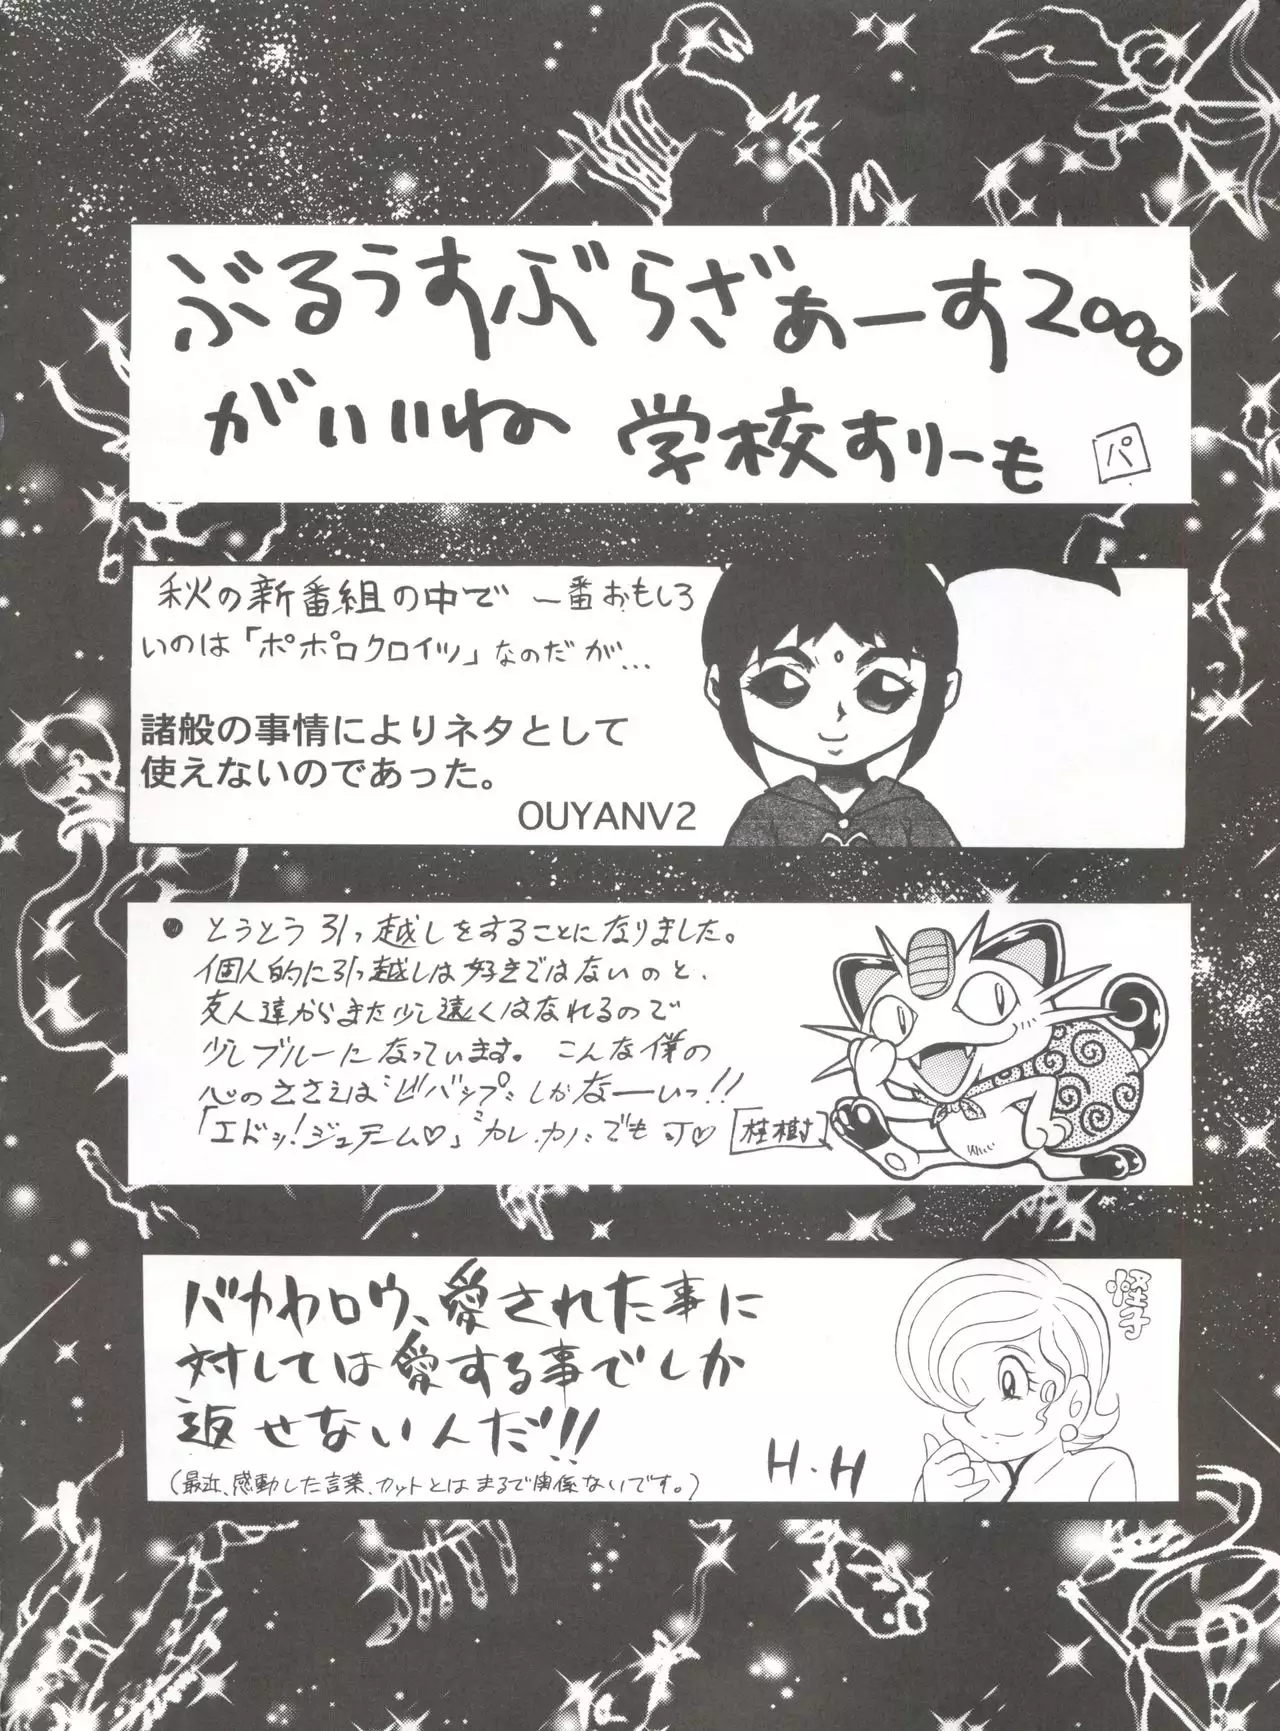 ぶるうすぶらざぁーす2000
がいいね 学校すりーも パ
秋の新番組の中で 一番おもしろ
いのは「ポポロクロイツ」なのだが…
諸般の事情によりネタとして
使えないのであった。
OUYANV2
● とうとう引っ越しをすることになりました。
個人的に引っ越しは好きではないのと、
友人達からまた少し遠くはなれるので
少しブルーになっています。 こんな僕の
心のささえは"ビバップ"しかなーいっ!!
「エドッ!ジュテーム♡」"カレ.カノ"でも可♡ [桂樹]
バカヤロウ、愛された事に
対しては愛する事でしか
返せないんだ!!
(最近、感動した言葉、カットとは まるで関係ないです。)
H.H
怪子